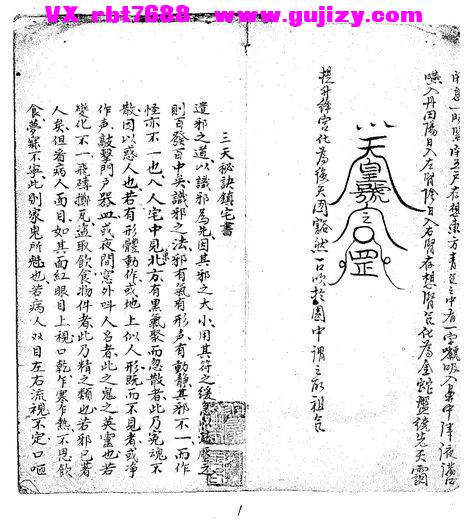 VX rbt7688 www.gujizy.com
嚥入丹田陽日入左腎陰日入右腎存想腎氣化為金蛇盤繞先天罡
天皇號令
罡
提升絳宮化為後天圓豁然一口吹於圈中謂之取祖炁
三天秘訣鎮宅書
遣邪之道以識邪為先因其邪之大小用其符之緩急
則百發百中矣識邪之法邪有氣有形声有動静其邪不一而作
怪亦不一也入人宅中見北方有黒氣聚而忽散者此乃冤魂不
散因以惑人也若有形體動作或地上似人形既而不見者或淨
作声敲擊門户器皿或夜間窓外呌人名者此之鬼之英靈也若
變化不一飛磚擲瓦盗取飲食物件者此乃精之類也若邪已著
人矣但看病人面目如其面紅眼目上視口乾乍寒乍熱不思飲
食夢寐不寧此則家鬼所魅也若病人双目左右流視不定口哑
1